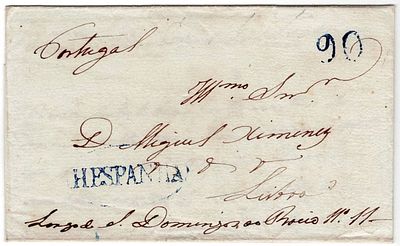 Portugal
90
Illmo Snr
D. Miguel Ximenez
HESPANHA
Lisboa
Largo de S. Domingos ao Rocio Nº 11